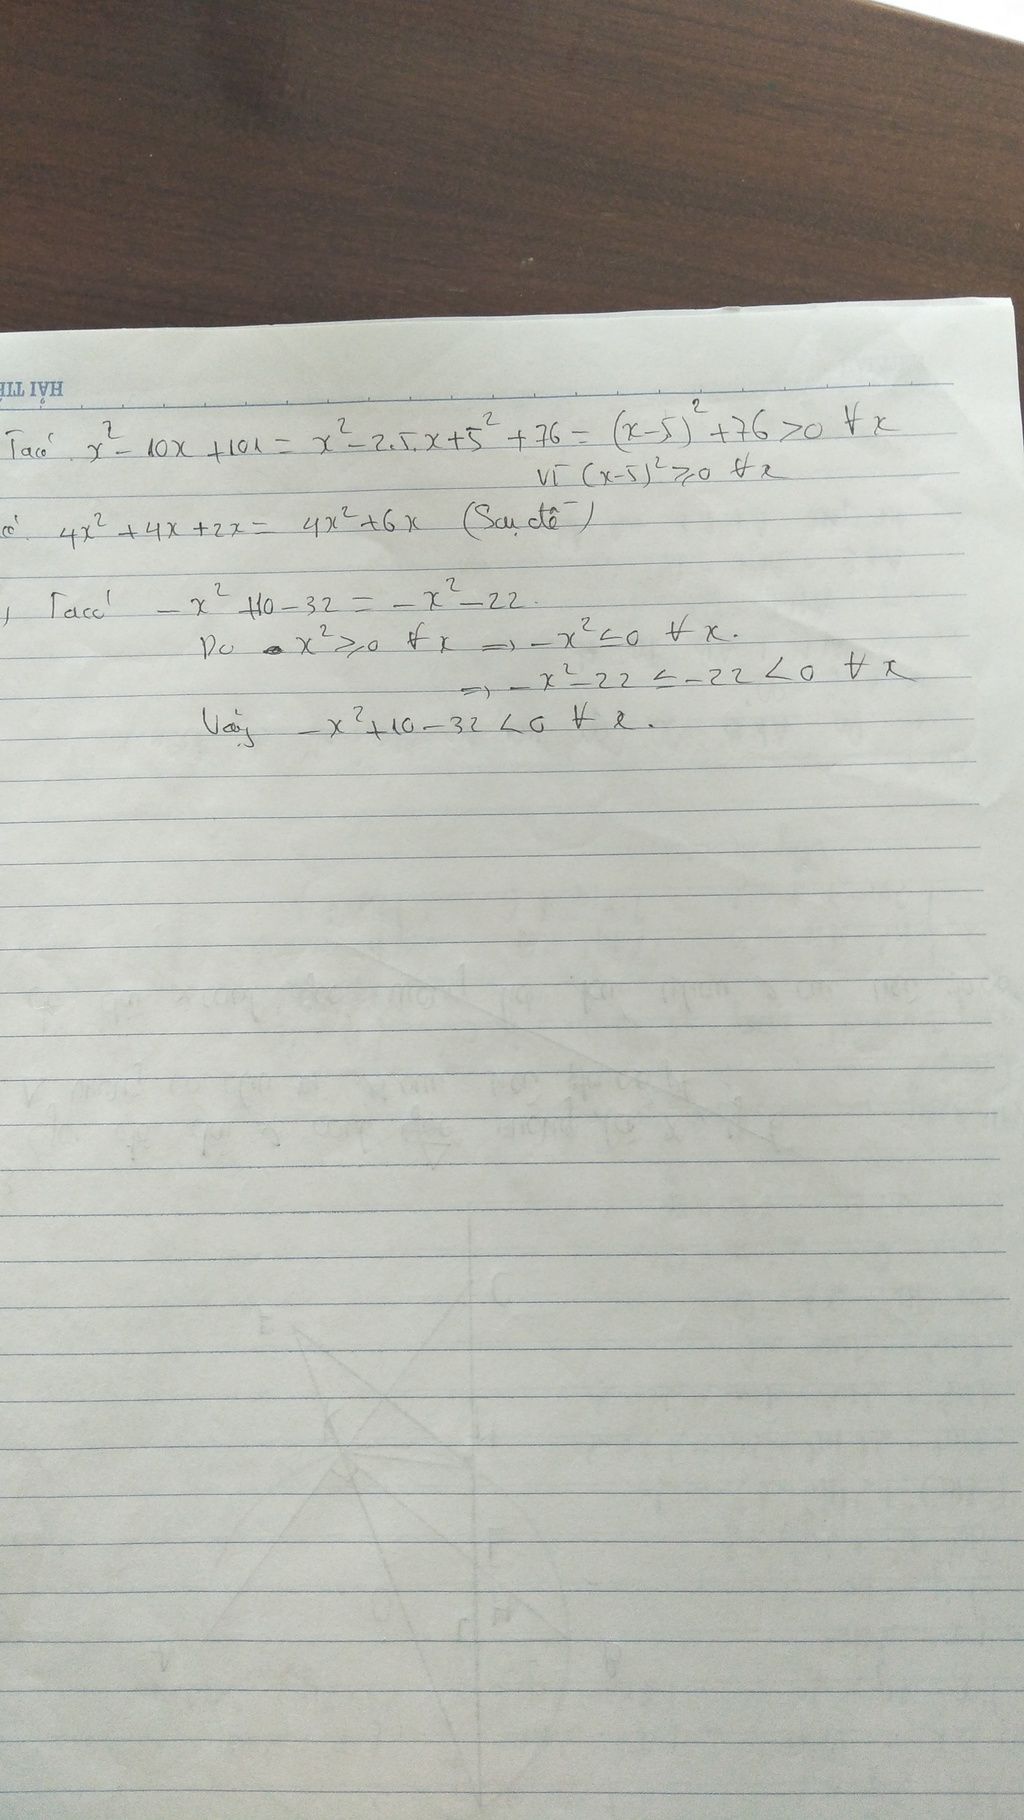 HẢI TIẾ
Ta có: x² - 10x + 101 = x² - 2.5.x + 5² + 76 = (x-5)² + 76 > 0 ∀ x
Vì (x-5)² ≥ 0 ∀ x
có: 4x² + 4x + 2x = 4x² + 6x (Sai đề)
, Ta có - x² + 10 - 32 = - x² - 22.
Do x² ≥ 0 ∀ x ⇒ - x² ≤ 0 ∀ x.
⇒ - x² - 22 ≤ - 22 < 0 ∀ x
Vậy - x² + 10 - 32 < 0 ∀ x.